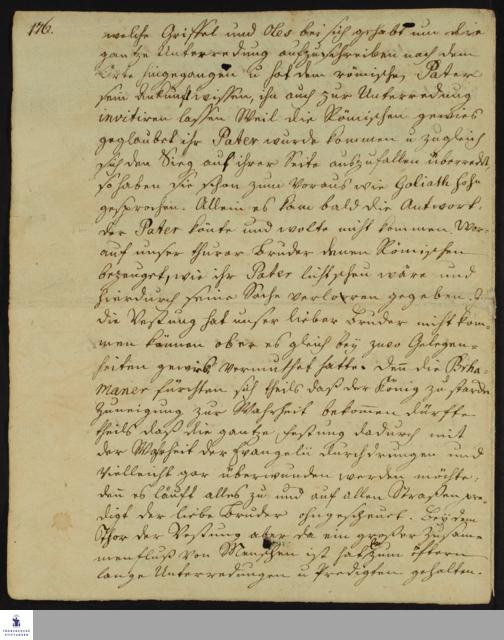 176.
welche Griffel und Oles bei sich gehabt um die
gantze Unterredung aufzuschreiben nach dem
Orte hingegangen u hat dem römischen Pater
sein Ankunft wissen, ihn auch zur Unterredung
invitiren lassen Weil die Römischen gewis
geglaubet ihr Pater wurde kommen u zugleich
sich den Sieg auf ihrer Seite auszufallen überredet,
so haben sie schon zum Voraus wie Goliath hohn
gesprochen. Allein es kam bald die Antwort.
der Pater könte und wolte nicht kommen, Wor-
auf unser theurer Bruder denen Römischen
bezeuget, wie ihr Pater lichtscheu wäre und
hierdurch seine Sache verloren gegeben. In
die Vestung hat unser lieber Bruder nicht kom-
men können ober es gleich bey zwo Gelegen-
heiten gewis vermuthet hatte. Denn die Brha-
maner fürchten sich theils daß der König zu starcke
Zuneigung zur Wahrheit bekommen dürffte
theils daß die gantze Festung dadurch mit
der Wahrheit der Evangelii durchdrungen und
vielleicht gar überwunden werden möchte,
denn es läufft alles zu und auf allen Straßen pre-
digt der liebe Bruder ohngescheuet. Bey dem
Thor der Vestung aber da ein großer Zusam-
menfluß von Menschen ist hat er zum öfftern
lange Unterredungen u Predigten gehalten.
FRANCKESCHE
STIFTUNGEN